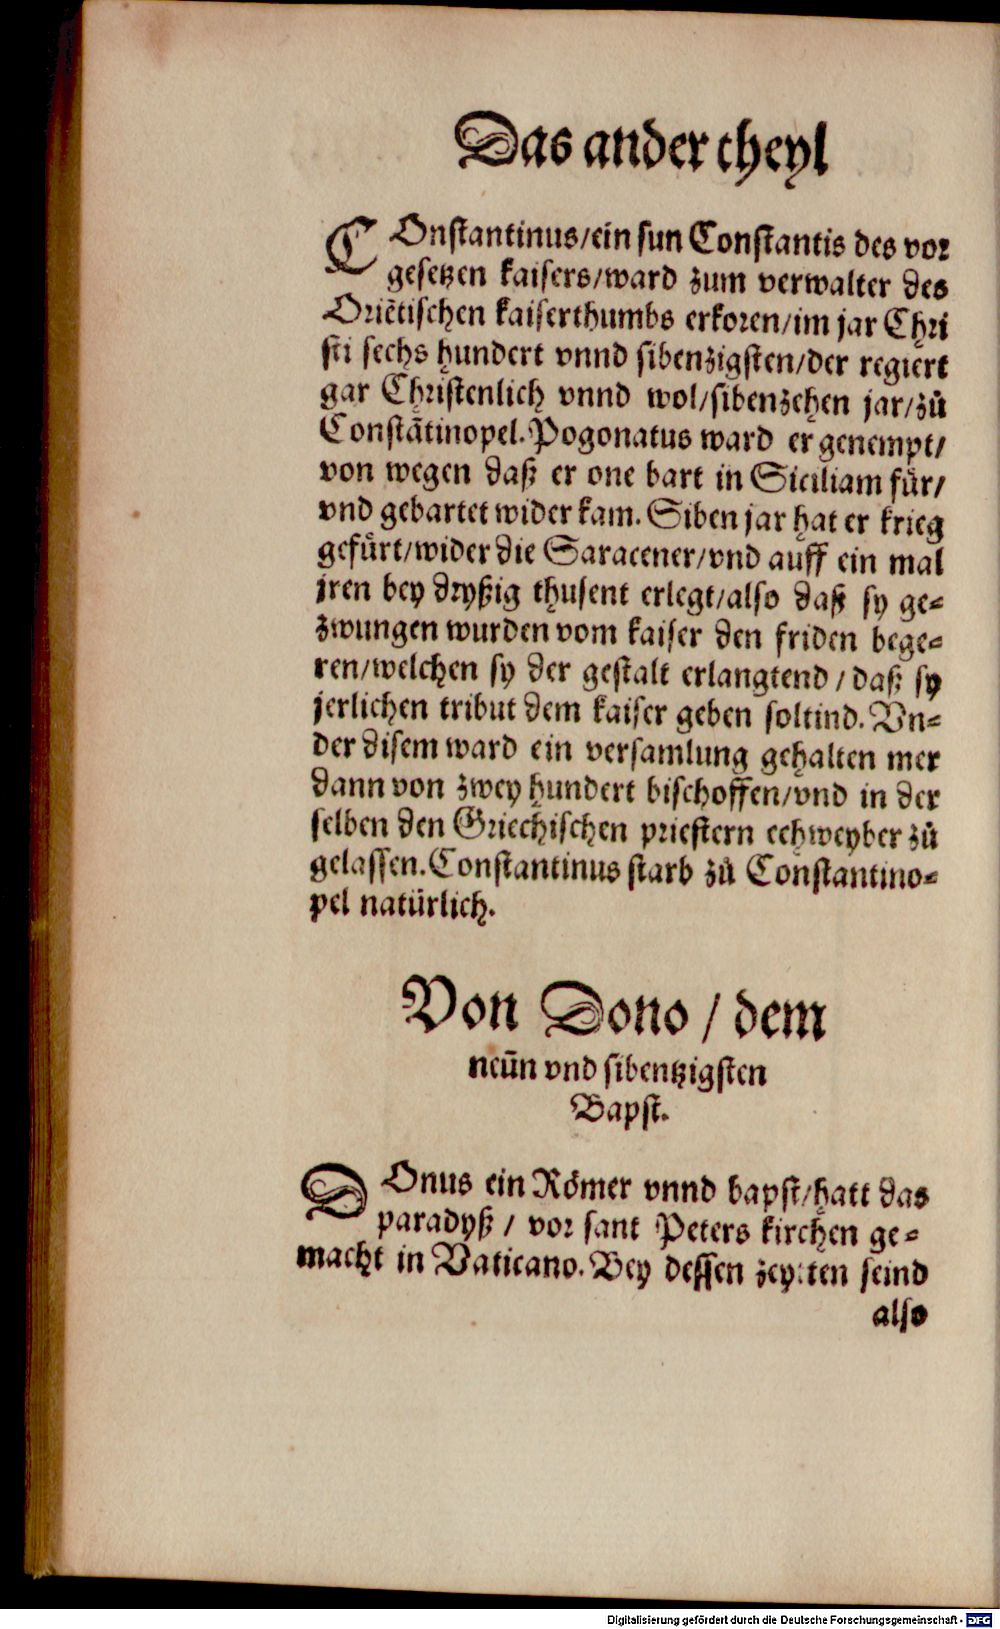 Das ander theyl
COnstantinus/ein sun Constantis des vor
gesetzen kaisers/ward zum verwalter des
Oriētischen kaiserthumbs erkoren/im jar Chri
sti sechs hundert vnnd sibenzigsten/der regiert
gar Christenlich vnnd wol/sibenzehen jar/zů
Constātinopel. Pogonatus ward er genempt/
von wegen daß er one bart in Siciliam fůr/
vnd gebartet wider kam. Siben jar hat er krieg
gefürt/wider die Saracener/vnd auff ein mal
jren bey dryßig thusent erlegt/also daß sy ge-
zwungen wurden vom kaiser den friden bege-
ren/welchen sy der gestalt erlangtend/daß sy
jerlichen tribut dem kaiser geben soltind. Vn-
der disem ward ein versamlung gehalten mer
dann von zwey hundert bischoffen/vnd in der
selben den Griechischen priestern eehweyber zů
gelassen. Constantinus starb zů Constantino-
pel natürlich.
Von Dono / dem
neün vnd sibentzigsten
Bapst.
DOnus ein Römer vnnd bapst/hatt das
paradyß / vor sant Peters kirchen ge-
macht in Vaticano. Bey dessen zeytten seind
also
Digitalisierung gefördert durch die Deutsche Forschungsgemeinschaft - DFG